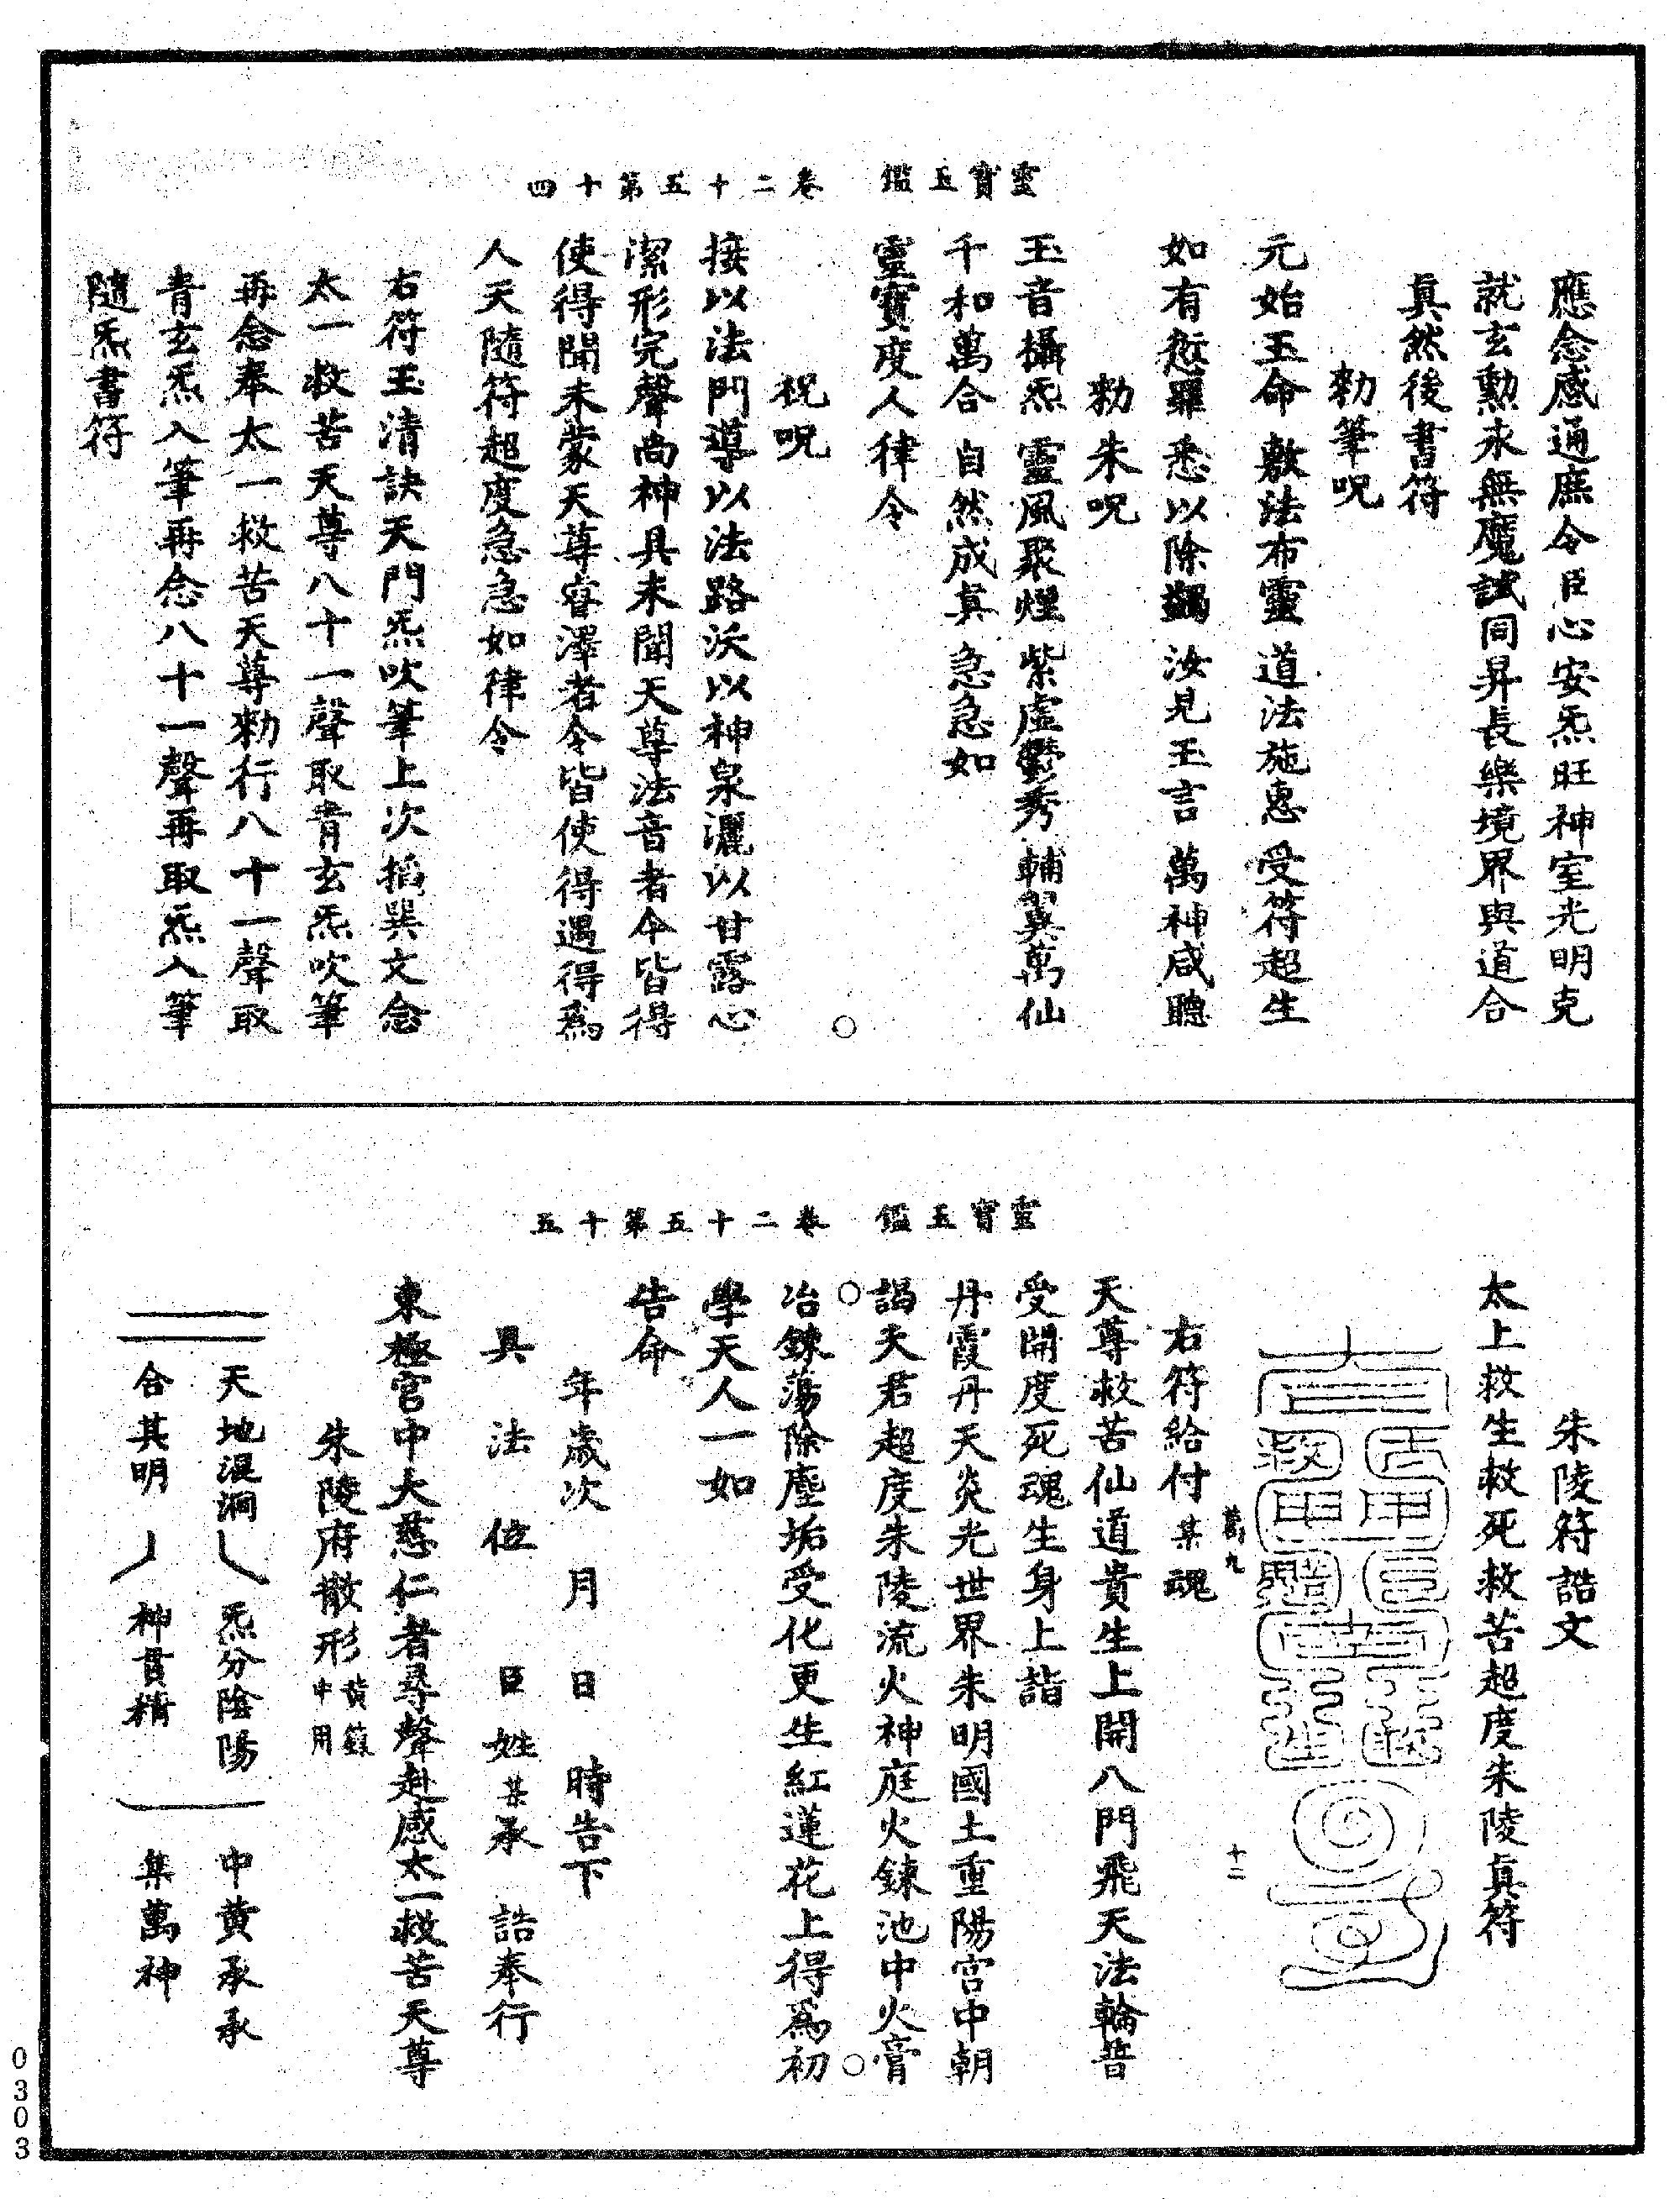 靈寶玉鑑　卷二十五第十四
應念感通庶令臣心安炁旺神室光明克
就玄勳永無魔試同昇長樂境界與道合
眞然後書符
勑筆呪
元始玉命　敷法布靈　道法施惠　受符超生
如有愆羅　悉以除蠲　汝見玉言　萬神咸聽
勑朱呪
玉音攝炁　靈風聚煙　紫虛鬱秀　輔翼萬仙
千和萬合　自然成眞　急急如
靈寶度人律令
祝呪
接以法門導以法路沃以神泉灑以甘露心
潔形完聲尚神具未聞天尊法音者今皆得
使得聞未蒙天尊睿澤者令皆使得遇得爲
人天隨符超度急急如律令
右符玉清訣天門炁吹筆上次搯巽文念
太一救苦天尊八十一聲取青玄炁吹筆
再念奉太一救苦天尊勑行八十一聲取
青玄炁入筆再念八十一聲再取炁入筆
隨炁書符
靈寶玉鑑　卷二十五第十五
朱陵符誥文
太上救生救死救苦超度朱陵眞符
萬九　十二
右符給付某魂
天尊救苦仙道貴生上開八門飛天法輪普
受開度死魂生身上詣
丹霞丹天炎光世界朱明國土重陽宮中朝
謁天君超度朱陵流火神庭火鍊池中火膏
冶鍊蕩除塵垢受化更生紅蓮花上得爲初
學天人一如
告命
年歲次　月　日　時告下
具　法　位　臣姓某承　誥奉行
東極宮中大慈仁者尋聲赴感太一救苦天尊
朱陵府散形黃籙中用
天地混洞　炁分陰陽　中黃承承
合其明　神貫精　集萬神
0303